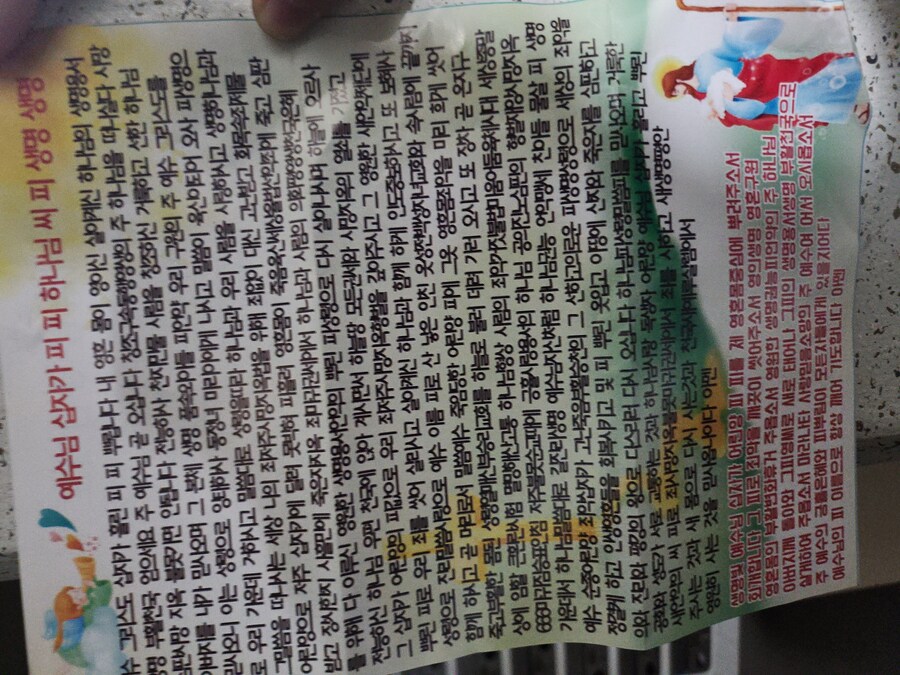 예수님 십자가 피 피 하나님 씨 피 생명 생명
그리스도 십자가 흘린 피 피 뿌립니다 내 영혼 몸이 영이신 살아계신 하나님의 생명용서
부활천국 얻으세요 주 예수님 곧 오십니다 창조구속동행영생의 주 하나님을 떠나살다 사망
심판사망 지옥 불못가면 안됩니다 전능하사 천지만물 사람을 창조하신 거룩하고 선한 하나님
아버지를 내가 믿사오며 그 본체 생명 품속외아들 피언약 우리 구원의 주 예수 그리스도를
믿사오니 이는 성령으로 잉태하사 동정녀 마리아에게 나시고 말씀이 육신이되어 오사 피생명으
로 우리 가운데 거하시고 말씀대로 성령을따라 하나님과 우리 사람을 사랑하시고 생명하나님과
그말씀을 떠나사는 세상 나의 죄저주사망지옥법을 위해 죄없이 대신 고난받고 화목속죄제물
어린양으로 저주 십자가에 달려 못박혀 피흘려 영혼몸이 죽음육신세상율법선악죄에 죽고 심판
받고 장사한지 사흘만에 죽은자지옥 죄마귀권세에서 하나님과 사람의 의화평영생천국은혜
를 위해 다 이루신 영원한 생명용서언약의 뿌린 피성령으로 다시 살아나시며 하늘에 오르사
전능하신 하나님 우편 천국에 앉아 계시면서 하늘땅 모든권세와 사망지옥의 열쇠를 가졌고
그 십자가 어린양의 피값으로 우리 죄저주사망지옥형벌을 갚아주시고 그 영원한 새언약제단에
뿌린 피로 우리 죄를 씻어 살리시고 살아계신 하나님과 함께 하게 인도중보하시고 또 보혜사
성령으로 진리말씀사랑으로 예수 이름 피로 산 낳은 인친 옷성전백성자녀교회와 속사람에 끝까지
함께 하시고 곧 머리로서 말씀예수 죽임당한 어린양 피에 그옷 영혼몸죄악을 미리 희게 씻어
죽고부활한 몸된 성령열매신부승리교회를 하늘로 불러 데려 가러 오시고 또 장차 곧 온지구
상에 임할 큰환란시험 멸망해산고통 하나님형상 사람의 죄악거짓불법미움어둠육체시대 세상종말
666마귀짐승표인침 저주불못순교때에 긍휼사랑용서의 하나님 공의진노심판의 형벌재앙사망지옥
가운데서 하나님말씀대로 길진리생명 예수님자신처럼 하나님권능 언약맹세 친아들 물살 피 생명
예수 순종어린양 죄악십자가 고난죽음부활승천의 그 선하고의로운 피생명성령으로 세상의 죄악을
정결케 하고 인생영혼들을 회복시키고 및 피 뿌린 옷입고 이땅에 산자와 죽은자를 심판하고
의와 진리와 평강의 왕으로 다스리러 다시 오십니다 하나님피성령말씀피를 믿사오며 거룩한
공회와 성도가 서로 교통하는 것과 하나님사랑 독생자 어린양 예수님 십자가 흘리고 뿌린
새언약의 씨 피로 죄사망지옥불못마귀권세에서 죄를 사하고 새생명평안
주시는 것과 새 몸으로 다시 사는것과 천국새예루살렘에서
영원히 사는 것을 믿사옵나이다 아멘
생명빛 예수님 십자가 어린양 피 피를 제 영혼몸중심에 뿌려주소서
회개합니다 그 피로 죄악을 깨끗이 씻어주소서 영의생명 영혼구원
영혼몸의 부활변화휴거 주옵소서 영원한 생명권능피언약의 주 하나님
아버지께 돌아와 그피영씨로 새로 태어나 그피의 생명용서생명 부활천국으로
살게하여 주옵소서 마라나타 사랑믿음소망의 주 예수여 어서 오시옵소서
주 예수의 긍휼은혜와 피뿌림이 모든자들에게 있을지어다
예수님의 피 이름으로 항상 깨어 기도합니다 아멘